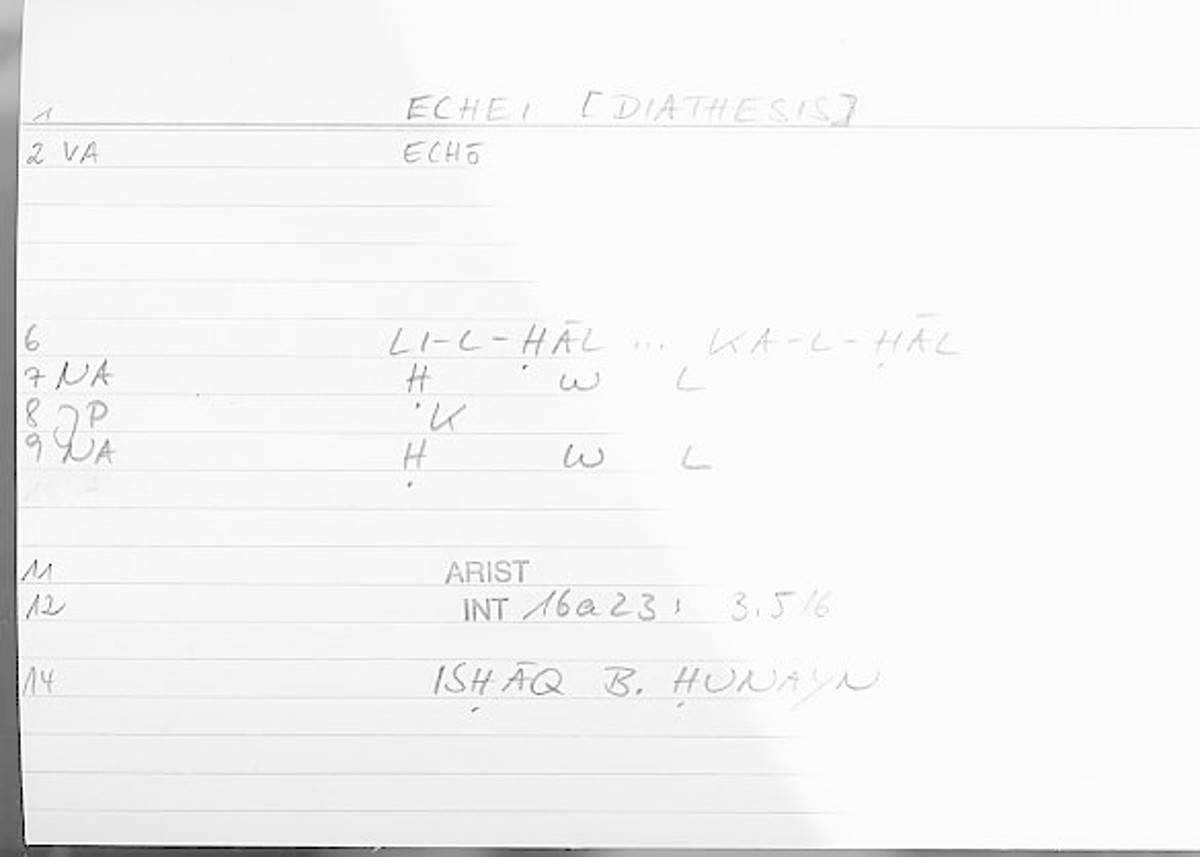 1 ECHEI [DIATHESIS]
2 VA ECHŌ
6 LI-L-ḤĀL ... KA-L-ḤĀL
7 NA Ḥ W L
8 P K
9 NA Ḥ W L
11 ARIST
12 INT 16a23; 3.5/6
14 ISḤĀQ B. ḤUNAYN